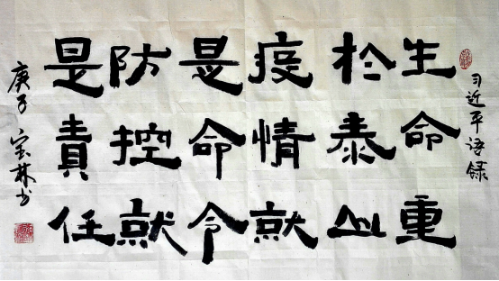 习近平语録
生命重
於泰山
疫情就
是命令
防控就
是責任
庚子宝林书